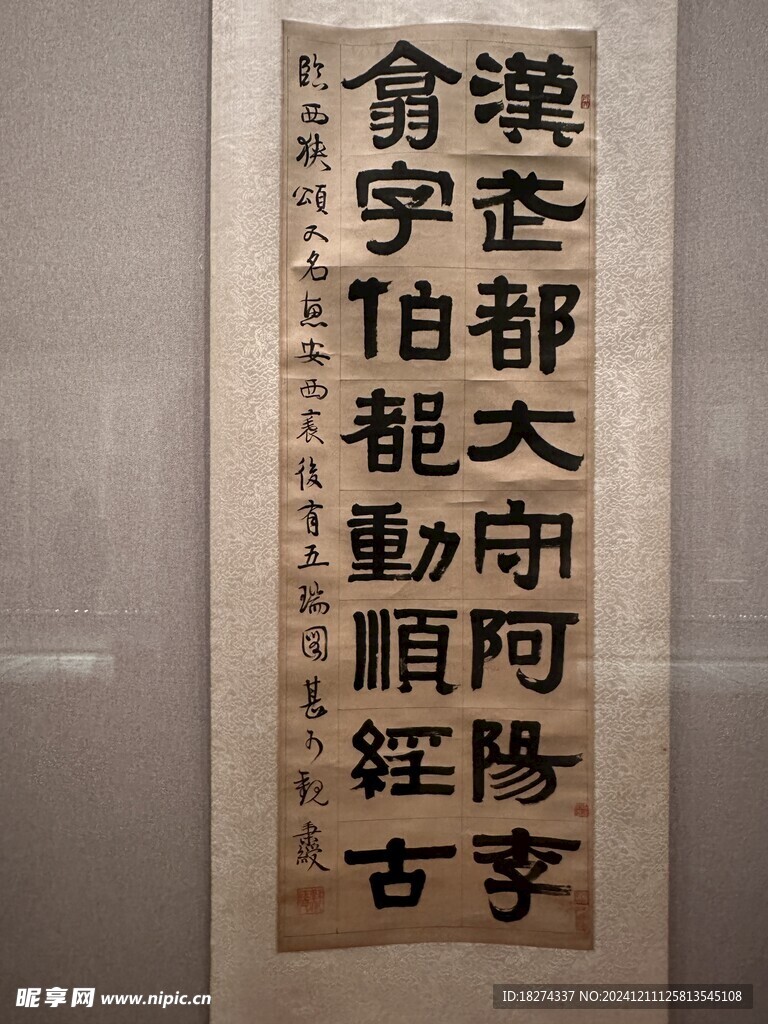 漢武都大守阿陽李
翕字伯都動順經古
臨西狹頌又名惠安西表後有五瑞圖甚可觀 秉綬
昵享网 www.nipic.cn
ID:18274337 NO:20241211125813545108